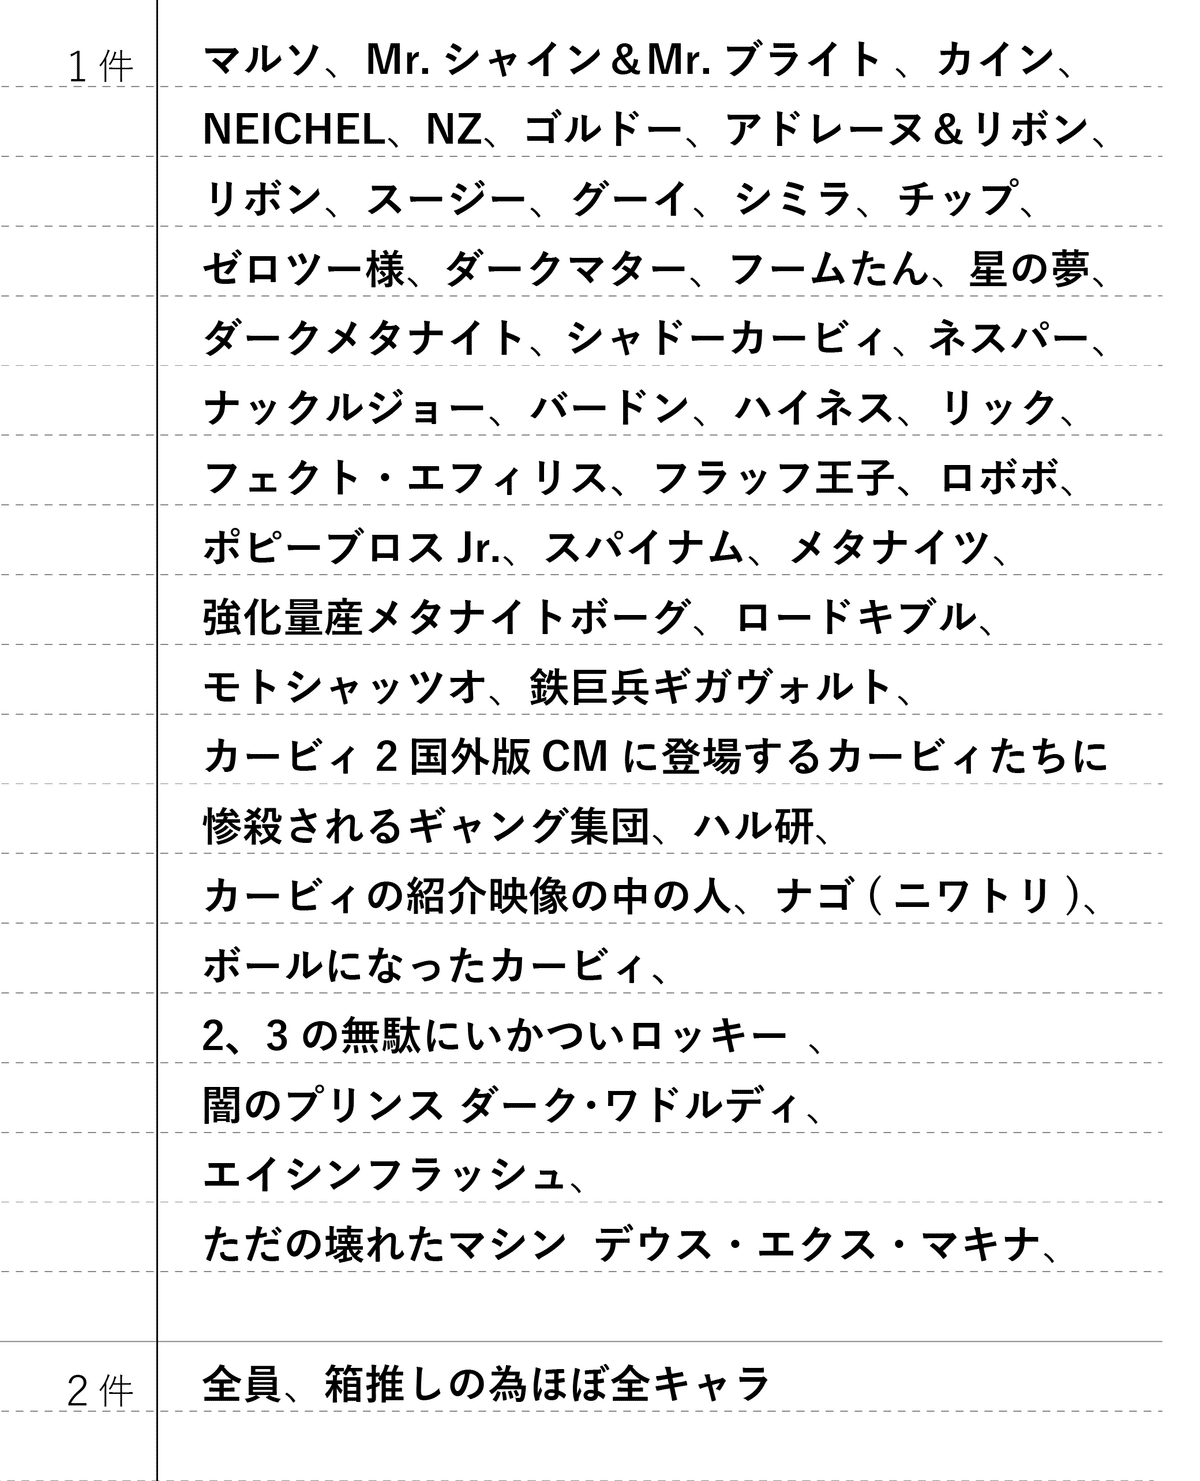 1件 マルソ、Mr. シャイン＆Mr. ブライト 、カイン、
NEICHEL、NZ、ゴルドー、アドレーヌ＆リボン、
リボン、スージー、グーイ、シミラ、チップ、
ゼロツー様、ダークマター、フームたん、星の夢、
ダークメタナイト、シャドーカービィ、ネスパー、
ナックルジョー、バードン、ハイネス、リック、
フェクト・エフィリス、フラッフ王子、ロボボ、
ポピーブロス Jr.、スパイナム、メタナイツ、
強化量産メタナイトボーグ、ロードキブル、
モトシャッツオ、鉄巨兵ギガヴォルト、
カービィ 2 国外版 CM に登場するカービィたちに
惨殺されるギャング集団、ハル研、
カービィの紹介映像の中の人、ナゴ ( ニワトリ )、
ボールになったカービィ、
2、3 の無駄にいかついロッキー 、
闇のプリンス ダーク・ワドルディ、
エイシンフラッシュ、
ただの壊れたマシン デウス・エクス・マキナ、
2件 全員、箱推しの為ほぼ全キャラ